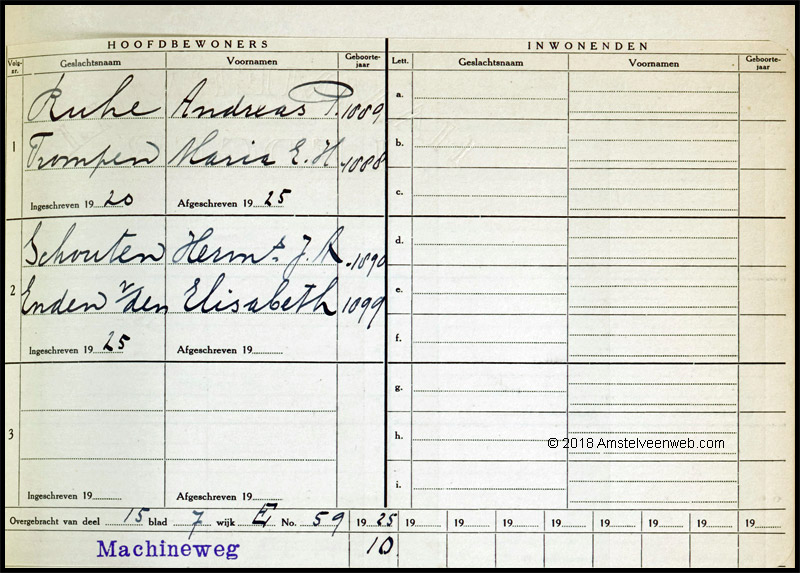 HOOFDBEWONERS INWONENDEN
Volg-nr. Geslachtsnaam Voornamen Geboorte-jaar Lett. Geslachtsnaam Voornamen Geboorte-jaar
Ruhe Andreas P. 1889 a.
1 Trompen Maria E. H. 1888 b.
Ingeschreven 19 20 Afgeschreven 19 25 c.
Schouten Herm.s J. R 1890 d.
2 Enden v/den Elisabeth 1899 e.
Ingeschreven 19 25 Afgeschreven 19 f.
g.
3 h.
© 2018 Amstelveenweb.com
Ingeschreven 19 Afgeschreven 19 i.
Overgebracht van deel 15 blad 7 wijk E No. 59 19 25 19 19 19 19 19 19 19 19
Machineweg 10